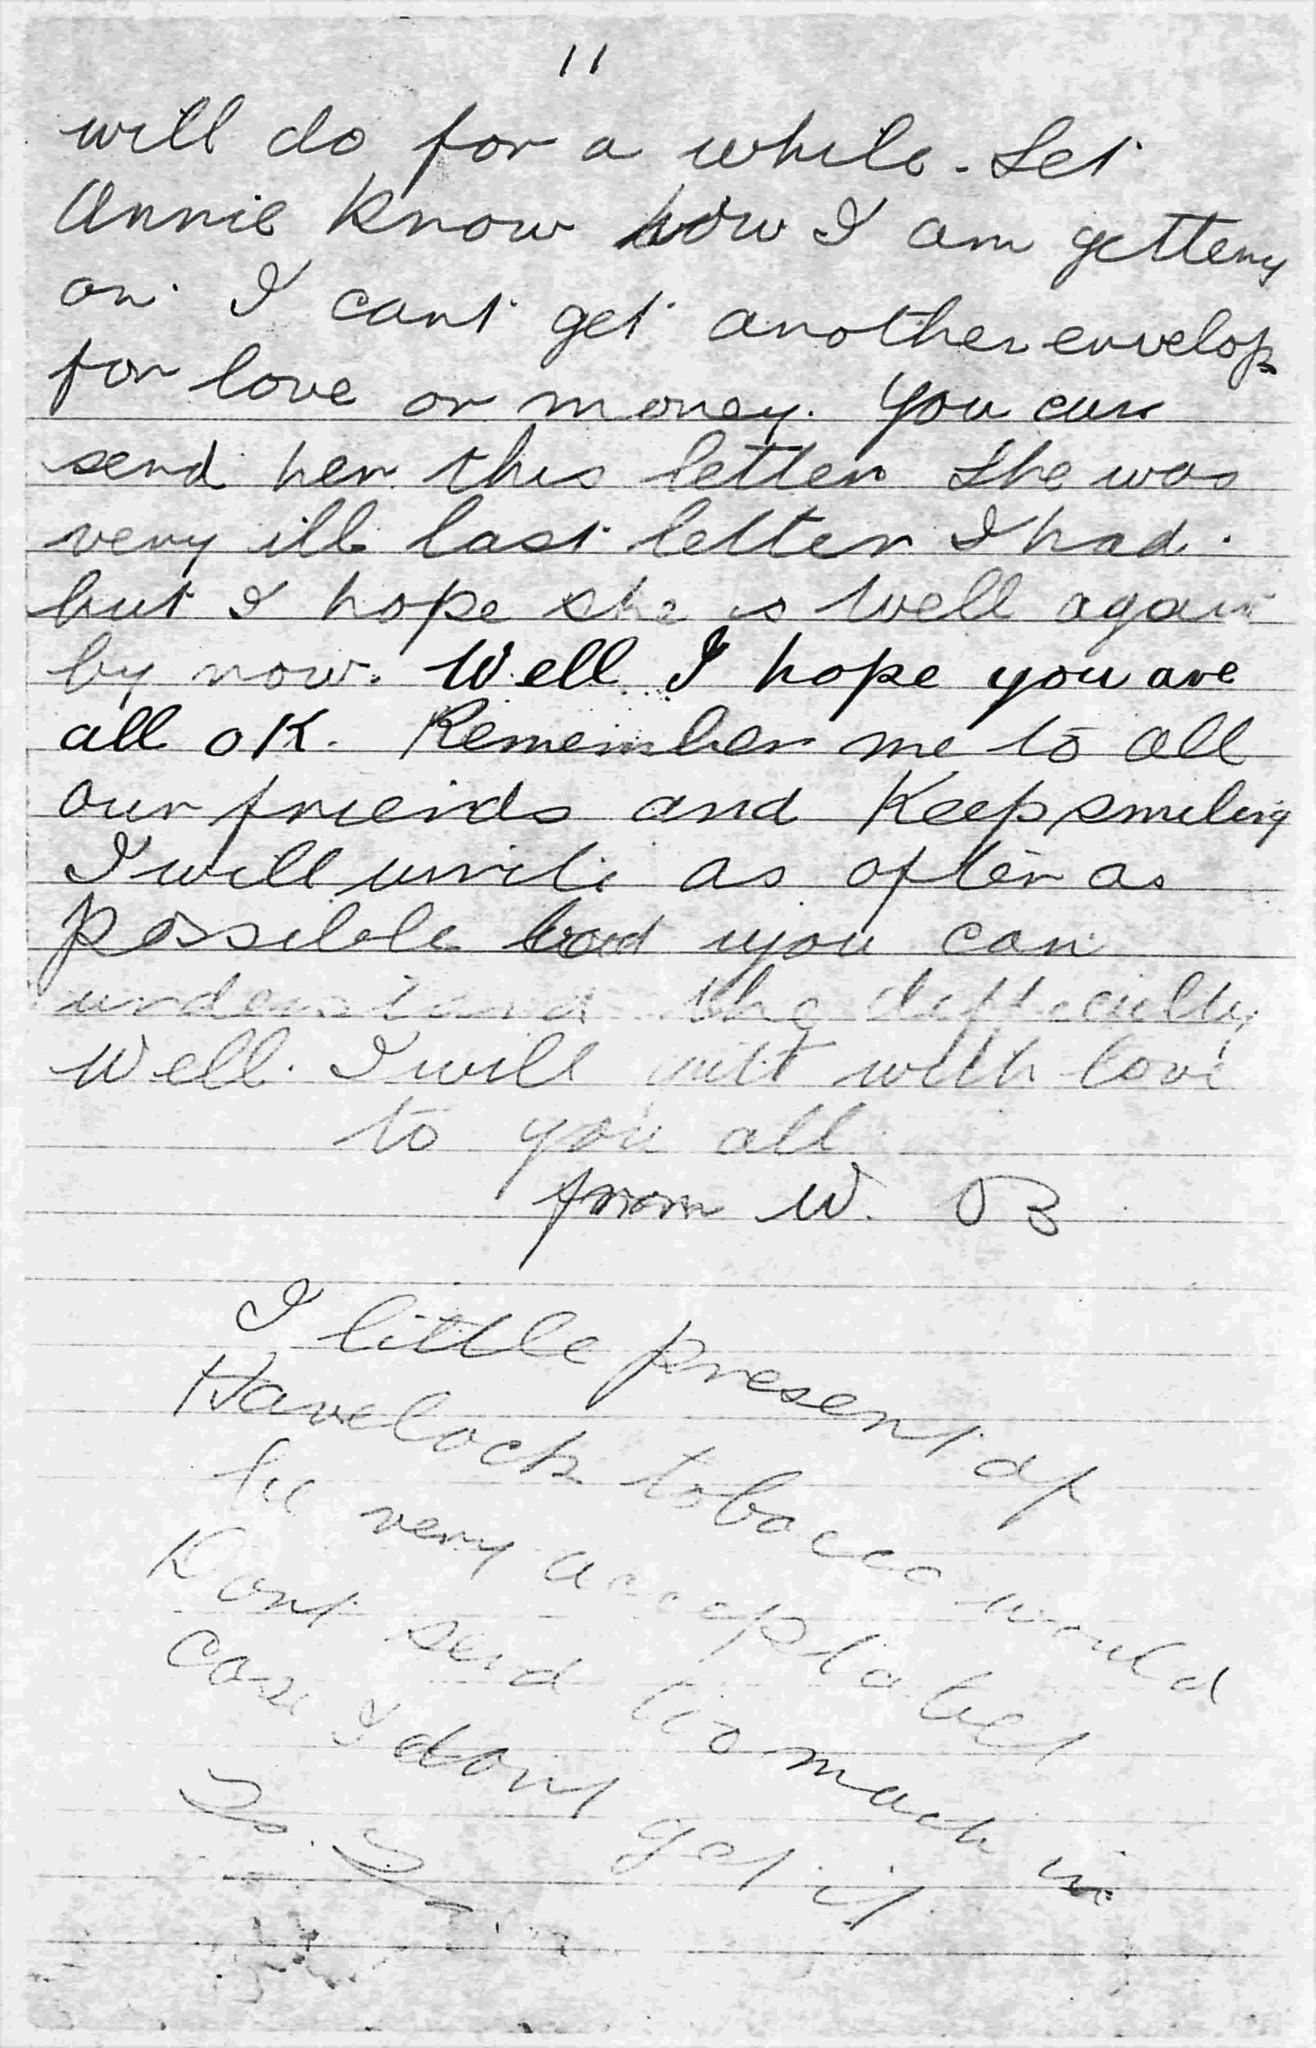 11
will do for a while. Let
Annie know how I am getting
on. I cant get another envelop
for love or money. You can
send her this letter She was
very ill last letter I had.
but I hope she is well again
by now. Well I hope you are
all OK. Remember me to all
our friends and Keep smiling
I will write as often as
possible but you can
understand the difficulty
Well. I will quit with love
to you all
from W. OB
I little present of
Havelock tobacco would
be very acceptabel
Dont send too much in
case I dont get it